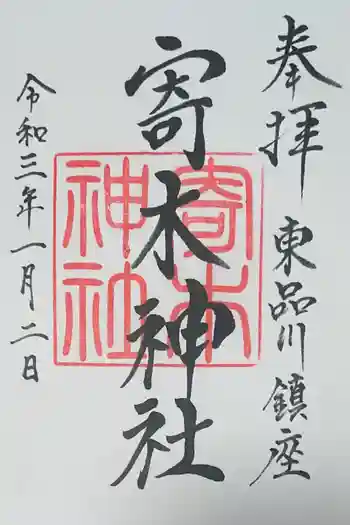 奉拝
東品川鎮座
寄木神社
寄木神社
令和三年一月二日